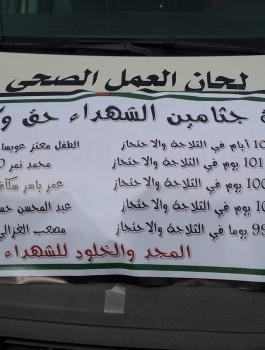 لجان العمل الصحي
جثامين الشهداء حق و
الطفل معتز عويسا 10 أيام في الثلاجة والاحتجاز
محمد نمر 101 يوم في الثلاجة والاحتجاز
عمر ياسر سكاف 100 يوم في الثلاجة والاحتجاز
عبد المحسن حس 10 يوم في الثلاجة والاحتجاز
مصعب الغزالي 99 يوما في الثلاجة والاحتجاز
المجد والخلود للشهداء